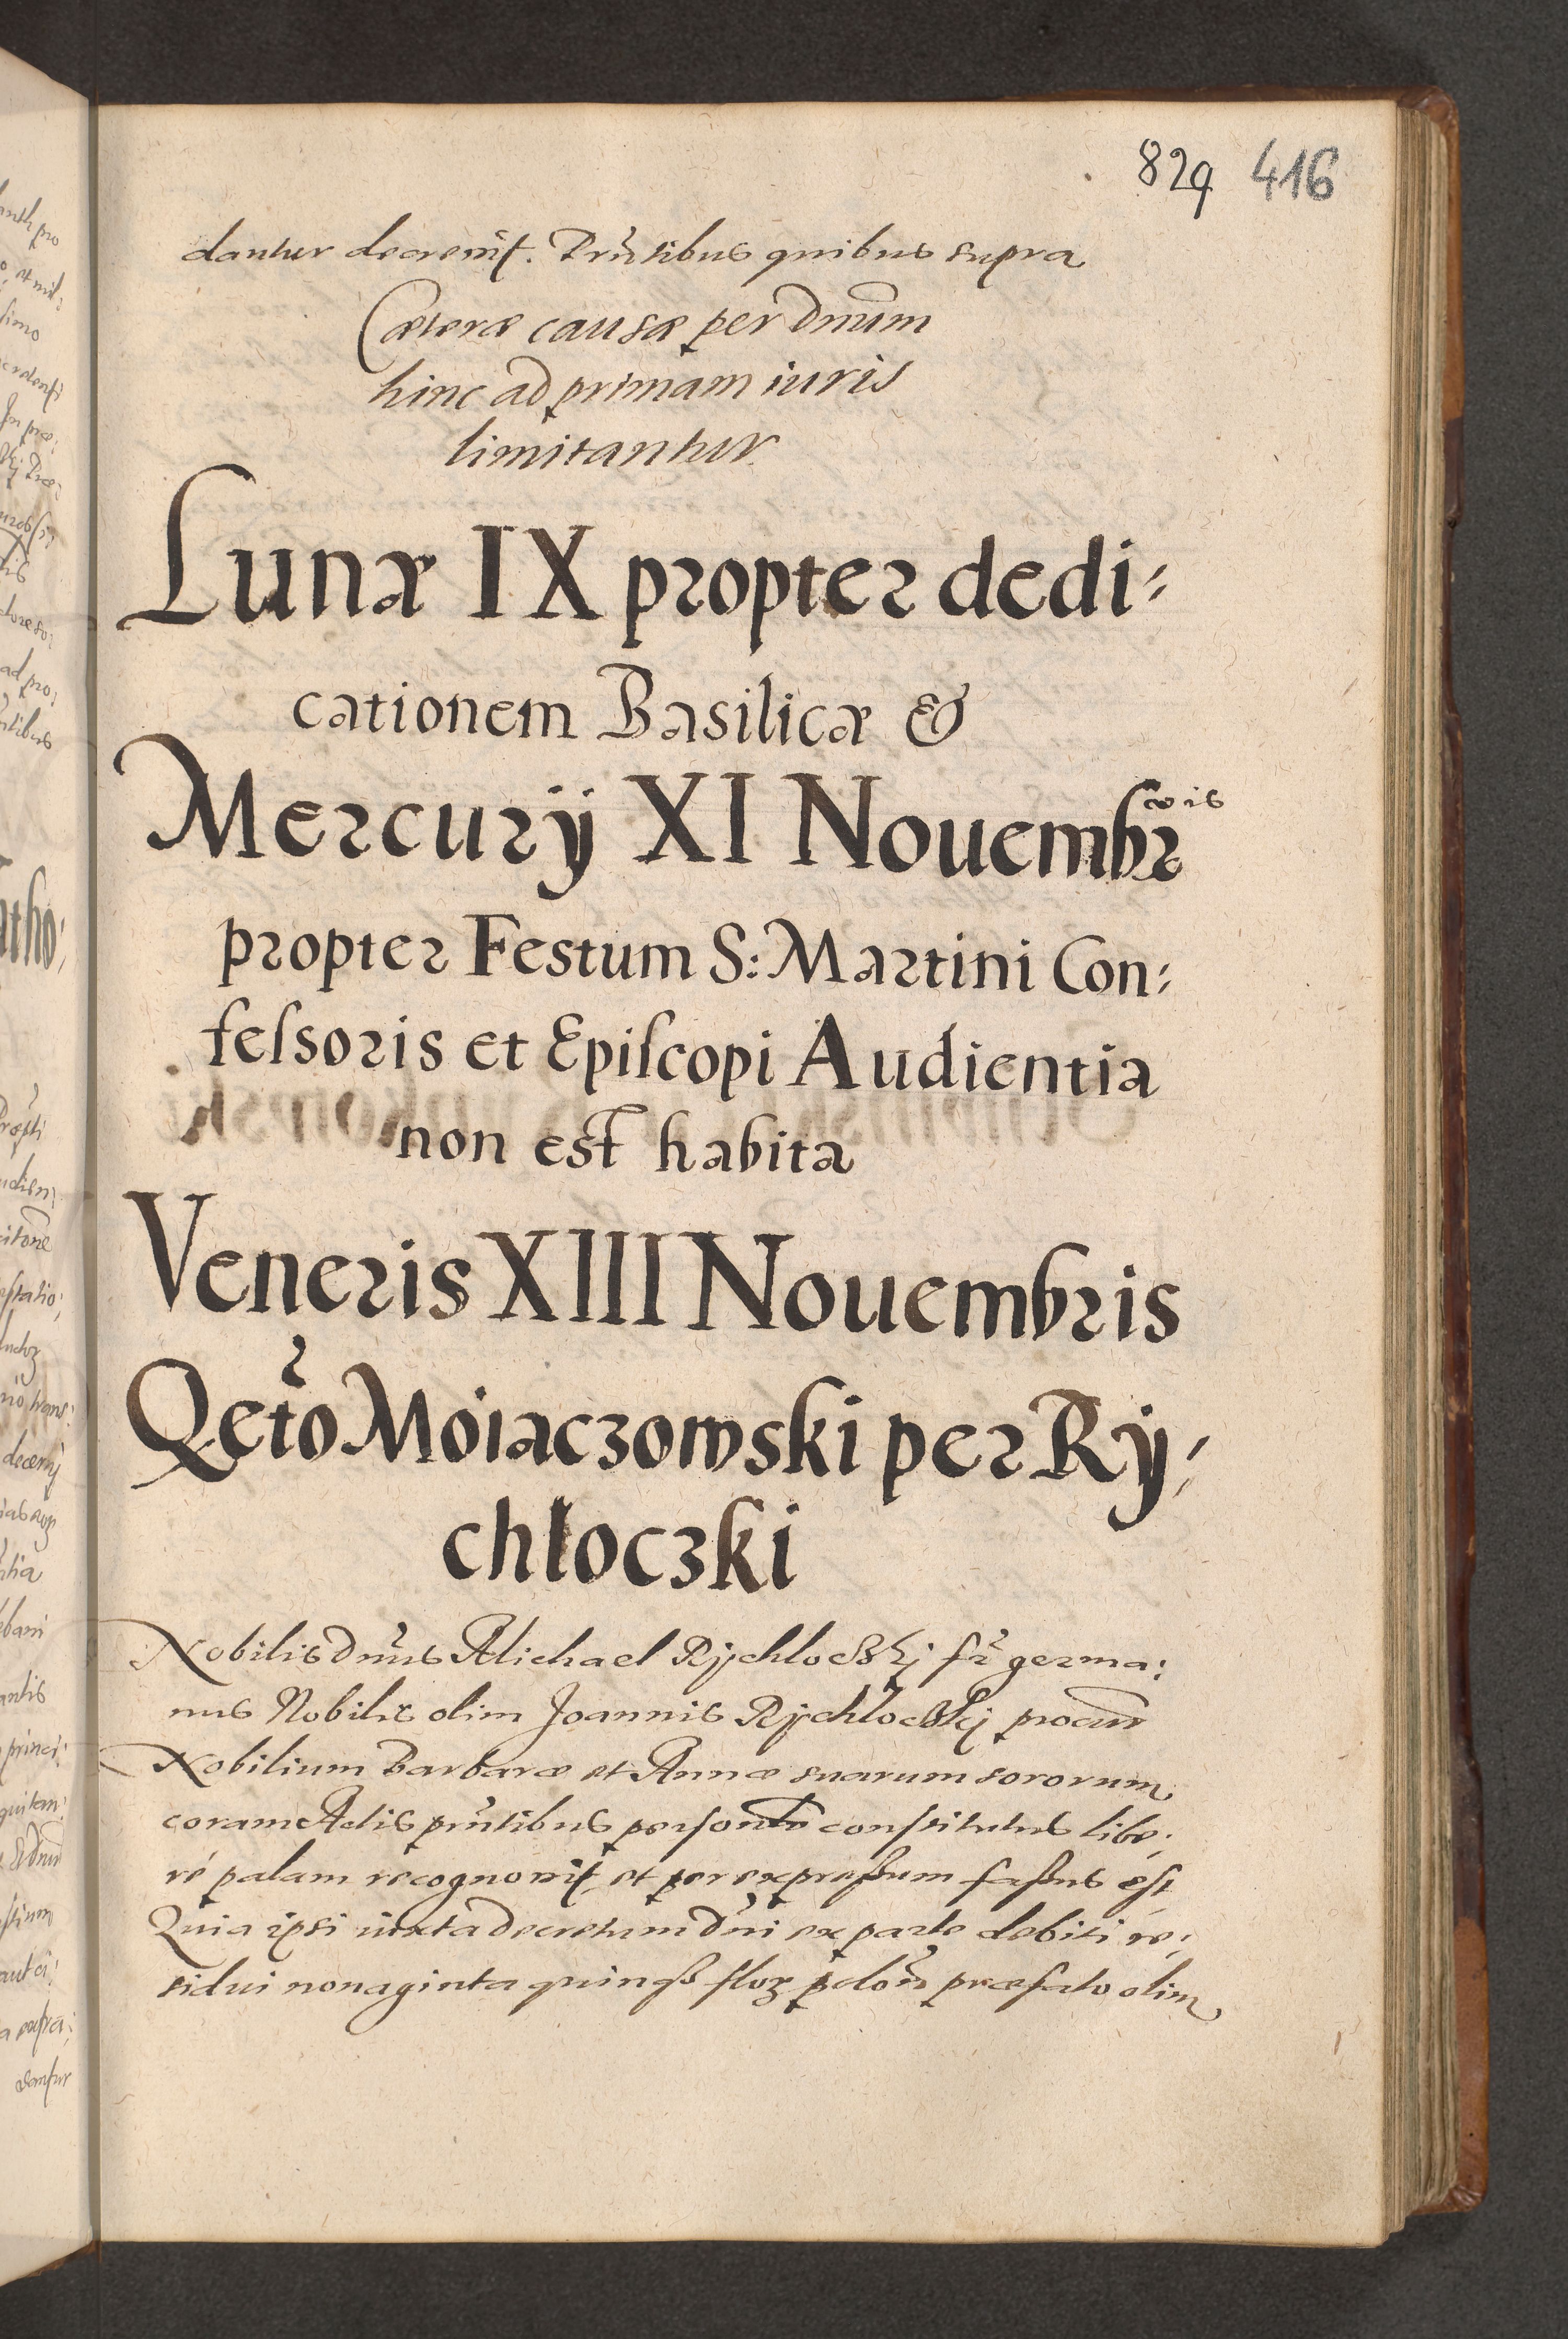 829 416
dantur decrevit. Prntibus quibus supra
Cæteræ causæ per Dnum
hinc ad primam iuris
limitantur
Lunæ IX propter dedi-
cationem Basilicæ &
Mercurij XI Nouembris
propter Festum S: Martini Con-
feſsoris et Epiſcopi Audientia
non est habita
Veneris XIII Nouembris
Qetro Moiaczowski per Ry-
chłoczki
Nobilis Dnus Michael Rÿchloczkj fr germa:
nus Nobilis olim Joannis Rÿchloczkj procur
Nobilium Barbaræ et Annæ suarum sororum
coram Actis prntibus personlr constitutus libe:
ré palam recognovit, et per expreſsum faſsus est
Quia ipsi iuxta decretum Dni ex parte debiti re:
sidui nonaginta quinqz florz præfato olim